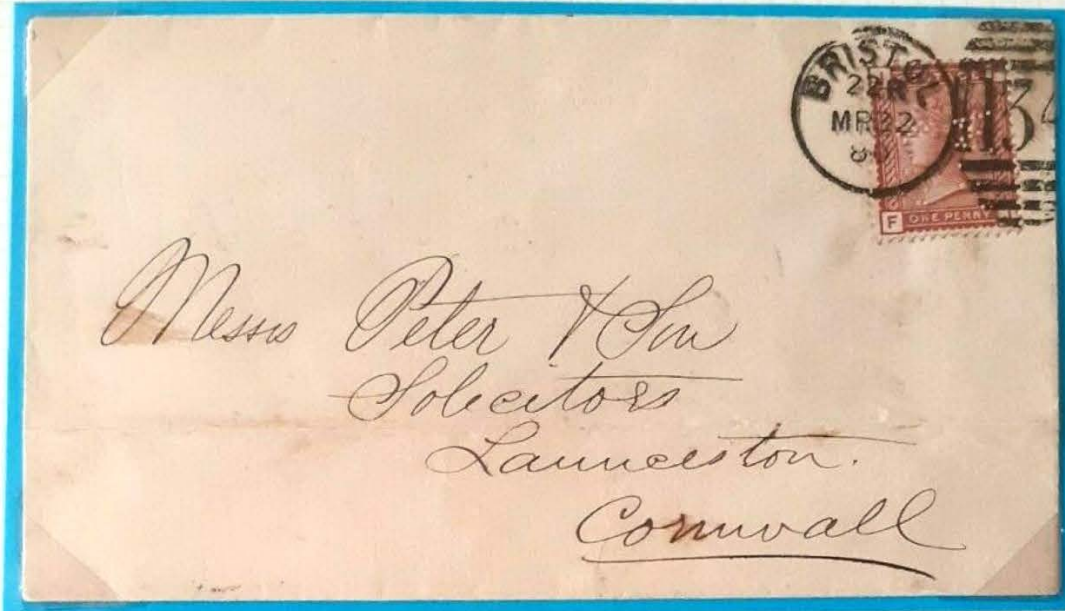 BRISTOL
22R
MR22
134
F ONE PENNY
Messrs Peter & Son
Solicitors
Launceston.
Cornwall